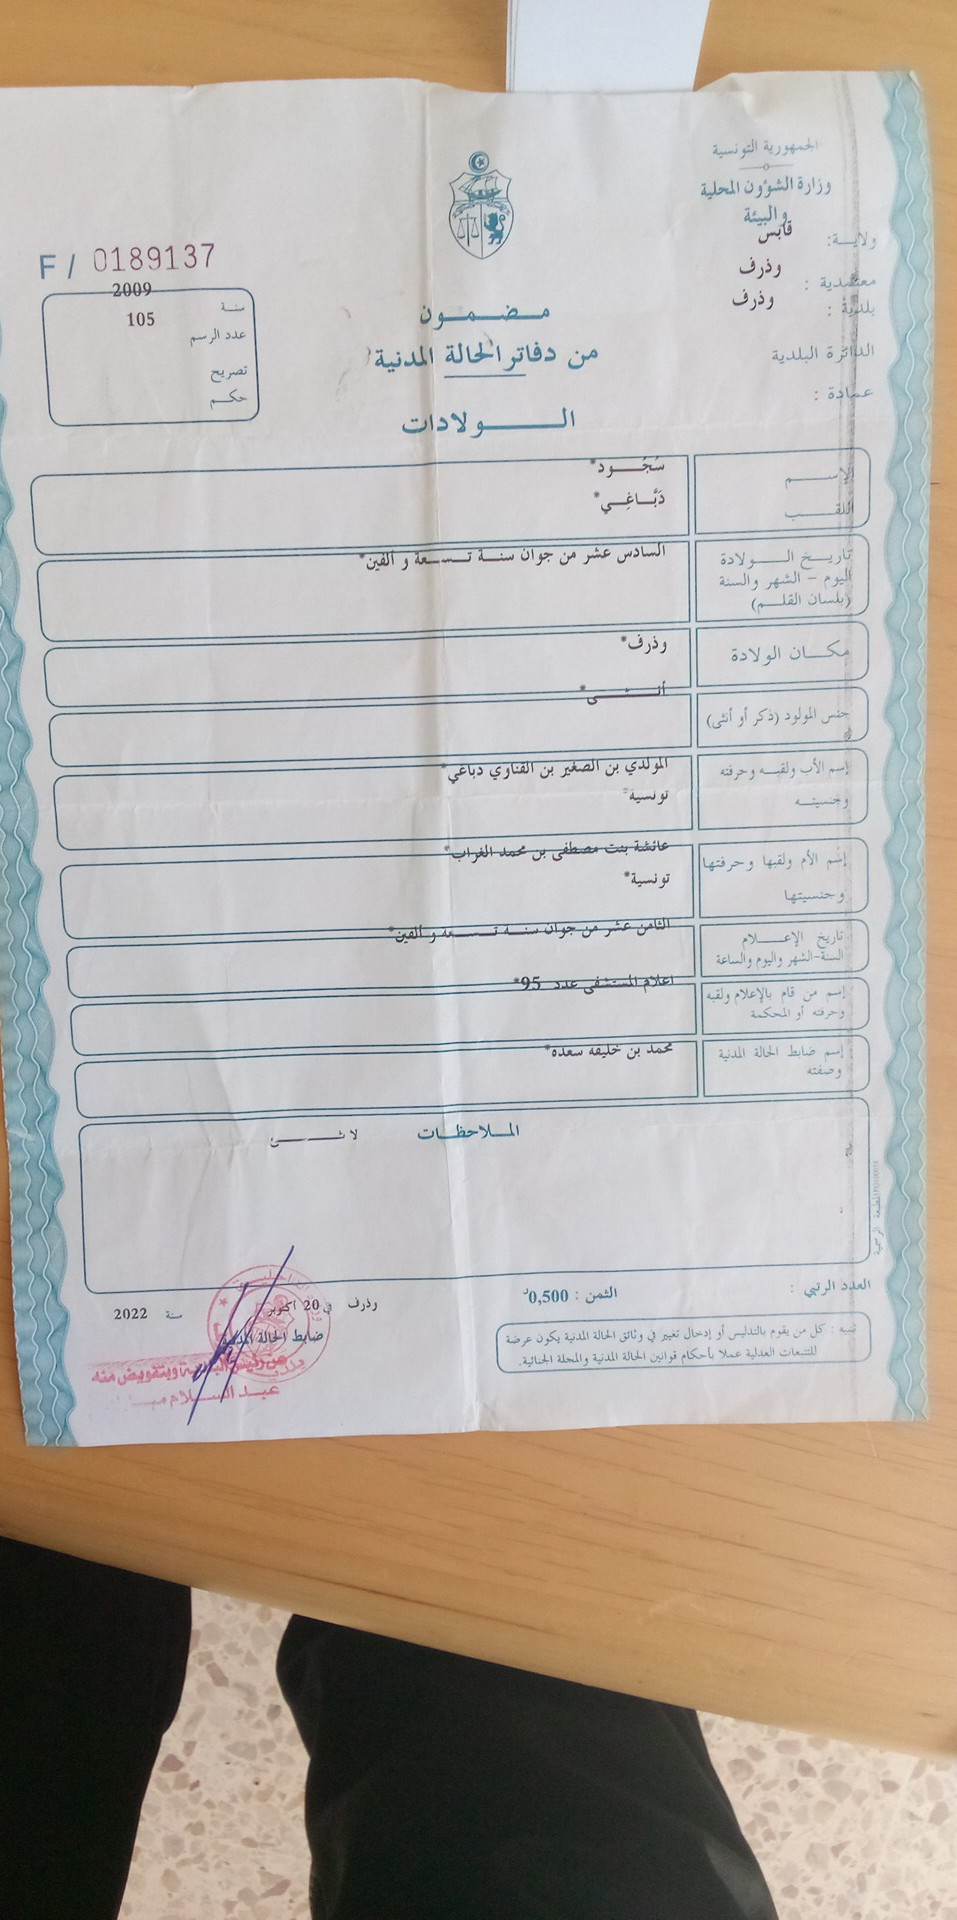 الجمهورية التونسية
وزارة الشؤون المحلية
والبيئة
ولايـــة: قابس
معتمدية : وذرف
بلدية : وذرف
الدائرة البلدية
عمادة :
F / 0189137
سنة 2009
عدد الرسم 105
تصريح
حكـم
مـضـمـون
من دفاتر الحالة المدنية
الـولادات
الإسـم سُجُـود*
اللقـب دَبَّـاغِـي*
تاريـخ الـولادة السادس عشر من جوان سنـة تـسـعة و ألفين*
اليوم – الشهر والسنة
(بلسان القلـم)
مكـان الولادة وذرف*
جنس المولود (ذكر أو أنثى) أنـثـى*
إسم الأب ولقبـه وحرفته المولدي بن الصغير بن القناوي دباغي*
وجنسيتـه تونسية*
إسم الأم ولقبها وحرفتها عائشة بنت مصطفى بن محمد الغراب*
وجنسيتها تونسية*
تاريخ الإعـلام الثامن عشر من جوان سنـة تـسـعة و ألفين*
السنة-الشهر واليوم والساعة
إسم من قام بالإعلام ولقبه اعلام المستشفى عدد 95*
وحرفته أو المحكمة
إسم ضابط الحالة المدنية محمد بن خليفه سعده*
وصفته
المـلاحظـات
لا شـئ
العدد الرتبي :
الثمن : 0,500د
تنبيه : كل من يقوم بالتدليس أو إدخال تغيير في وثائق الحالة المدنية يكون عرضة
للتتبعات العدلية عملا بأحكام قوانين الحالة المدنية والمجلة الجنائية.
وذرف في 20 أكتوبر سنة 2022
ضابط الحالة المدنية
عن رئيس البلدية وبتفويض منه
عبد السـلام